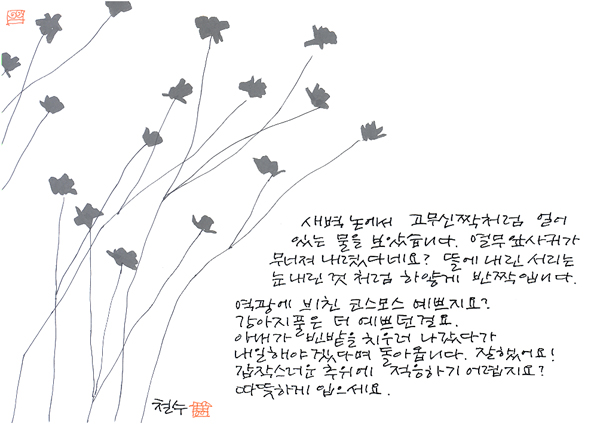 새벽 논에서 고무신짝처럼 얼어
있는 물을 보았습니다. 열무 잎사귀가
무너져 내렸다네요? 뜰에 내린 서리는
눈 내린 것 처럼 하얗게 반짝입니다.
역광에 비친 코스모스 예쁘지요?
강아지풀은 더 예쁘던걸요.
아내가 빈밭을 치우러 나갔다가
내일해야겠다며 돌아옵니다. 잘했어요!
갑작스러운 추위에 적응하기 어렵지요?
따뜻하게 입으세요.
철수